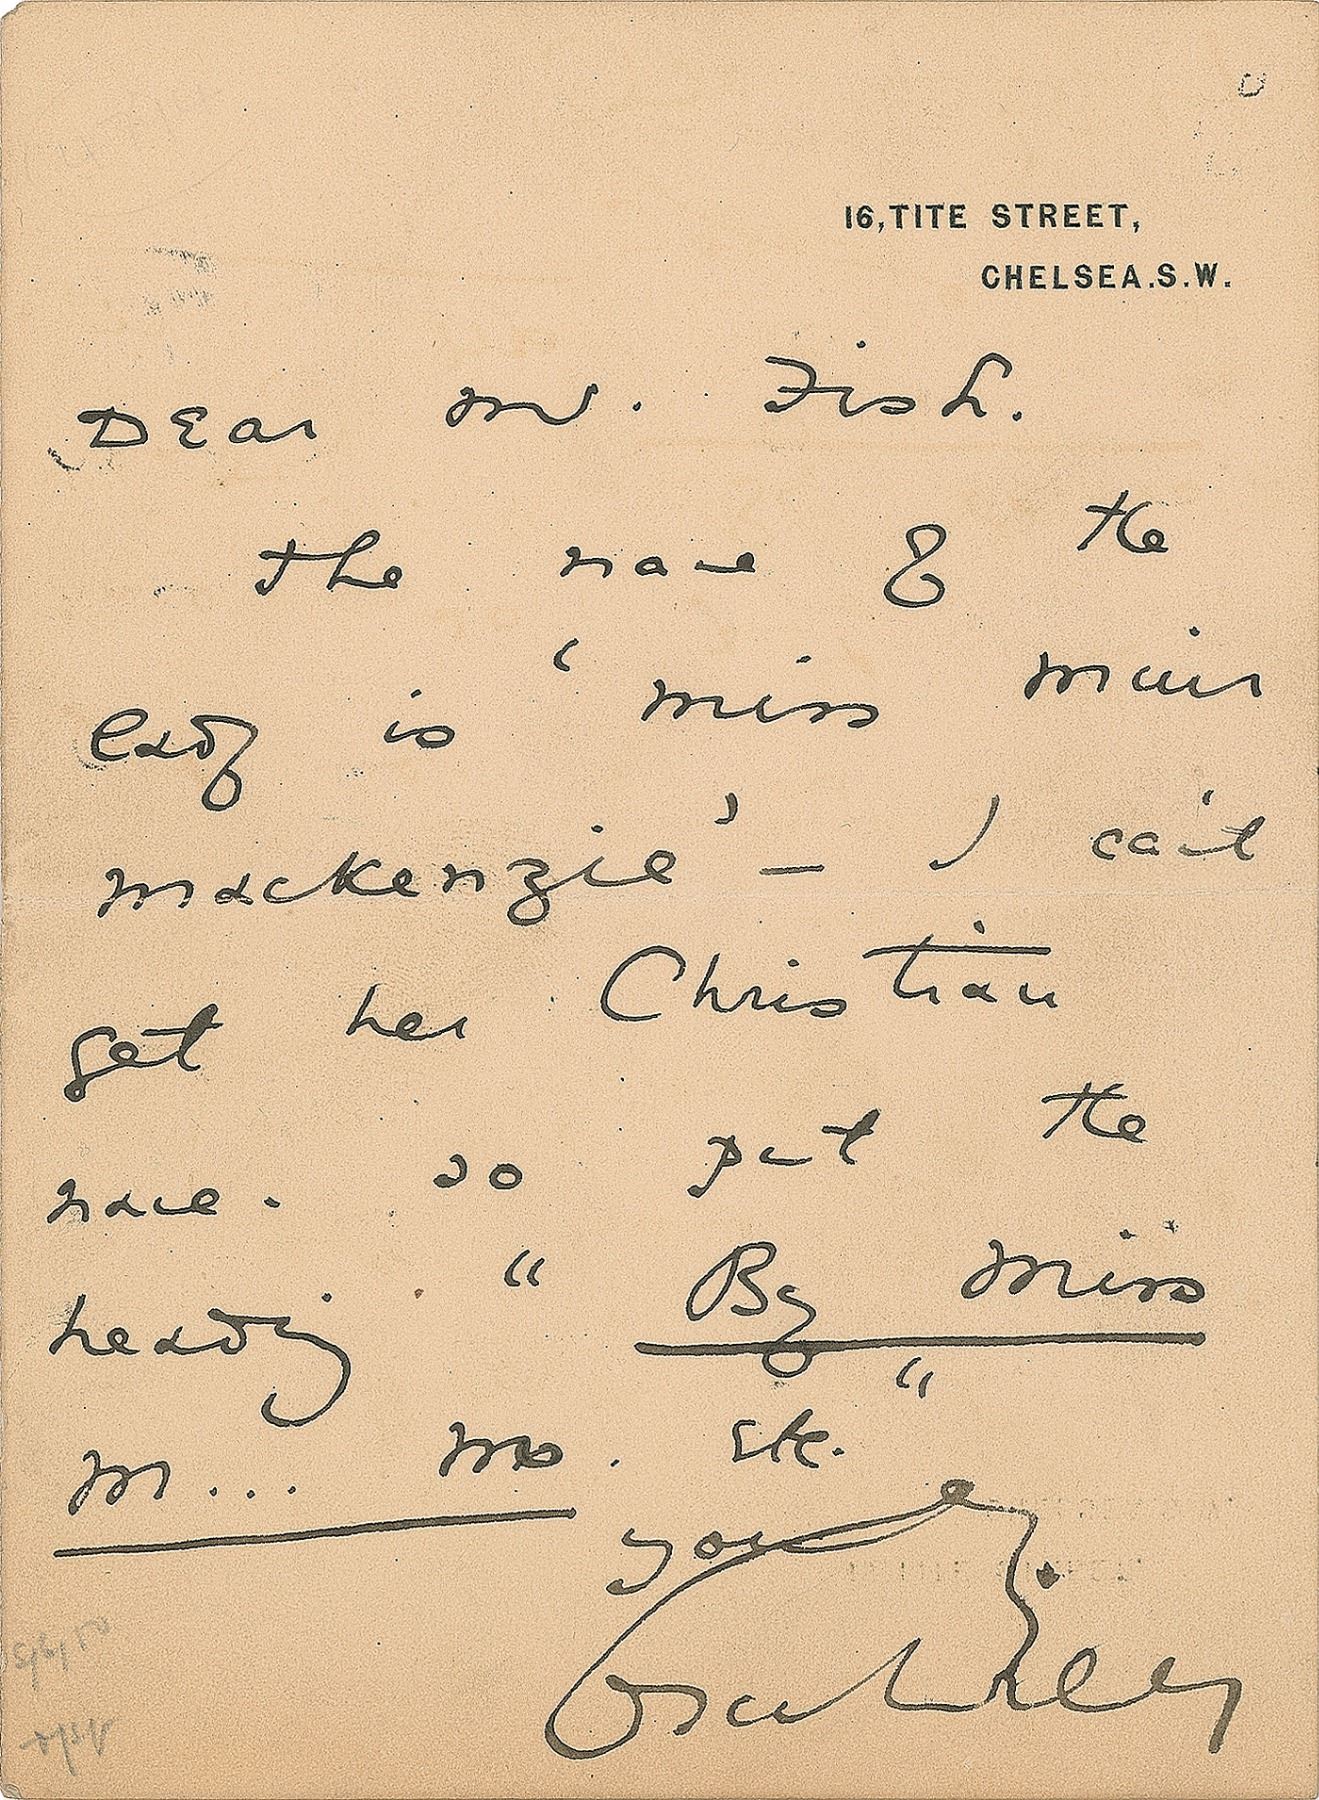 16, TITE STREET,
CHELSEA. S. W.
Dear Mr. Fish.
The name of the
lady is 'Miss Muir
Mackenzie' — I can't
get her Christian
name. So put the
heading "By Miss
M... M. etc."
yours
Oscar Wilde